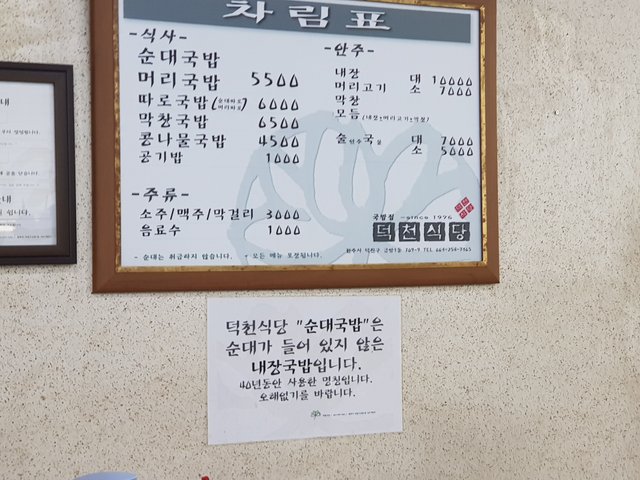 차림표
-식사-
순대국밥
머리국밥 5500
따로국밥(순대따로 머리따로) 6000
막창국밥 6500
콩나물국밥 4500
공기밥 1000
-주류-
소주/맥주/막걸리 3000
음료수 1000
- 순대는 취급하지 않습니다. * 모든 메뉴 포장됩니다.
-안주-
내장 대 10000
머리고기 소 7000
막창
모듬(내장+머리고기+막창)
술국 대 7000
소 5000
국밥집 -since 1976
덕천식당
덕천식당 "순대국밥"은
순대가 들어 있지 않은
내장국밥입니다.
40년동안 사용한 명칭입니다.
오해없기를 바랍니다.